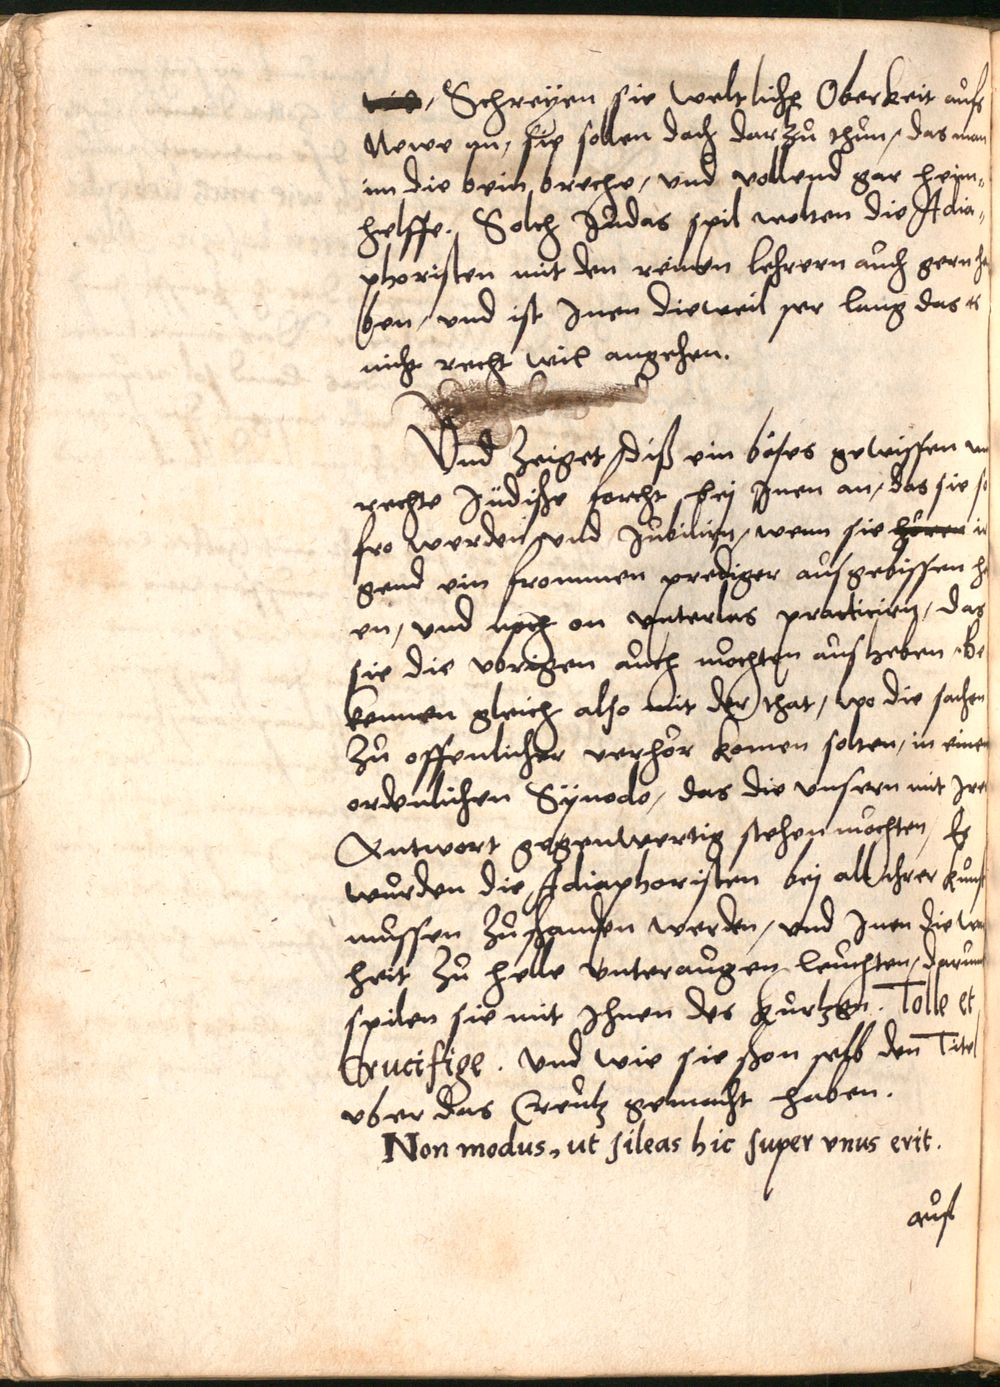 Schreyen sie weltliche Oberkeit aufs
Newe an, sie sollen doch darzu thun, das man
im die bein breche, und vollend gar heim-
helffe. Solch Judas spil wolten die Adia-
phoristen mit den reinen lehrern auch gern he
ben, und ist Inen dieweil ser lang das es
nicht recht wil angehen.
Und zeiget diß ein böses gewissen un
rechte Jüdishe forcht bej Inen an, das sie so
fro werden und Jubilirn, wenn sie hören ir
gend ein frommen prediger ausgebissen h
en, und noch on unterlas practicirn, das
sie die ubrigen auch mochten ausheben. Be
kennen gleich also mit der that, wo die sachen
zu offenlicher verhör komen solten, in einem
ordenlichen Synodo, das die unsern mit Ire
Antwort gegenwertig stehen mochten, Es
wurden die Adiaphoristen bej all ihrer kunst
mussen zu shanden werden, und Inen die wa
heit zu helle unter augen leuchten, darumb
spilen sie mit Ihnen des kurtzen. Tolle et
Crucifige. und wie sie shon selb den Titel
uber das Creutz gemacht haben.
Non modus, ut sileas hic super vnus erit.
auf